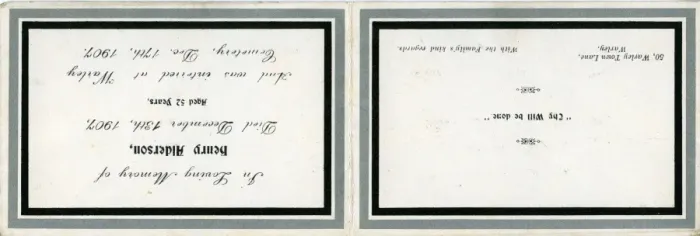 In Loving Memory of
Henry Alderson,
Died December 13th, 1907,
Aged 52 Years.
And was interred at Warley
Cemetery, Dec. 17th, 1907.
"Thy Will be done"
With the Family's kind regards.
50, Warley Town Lane,
Warley.